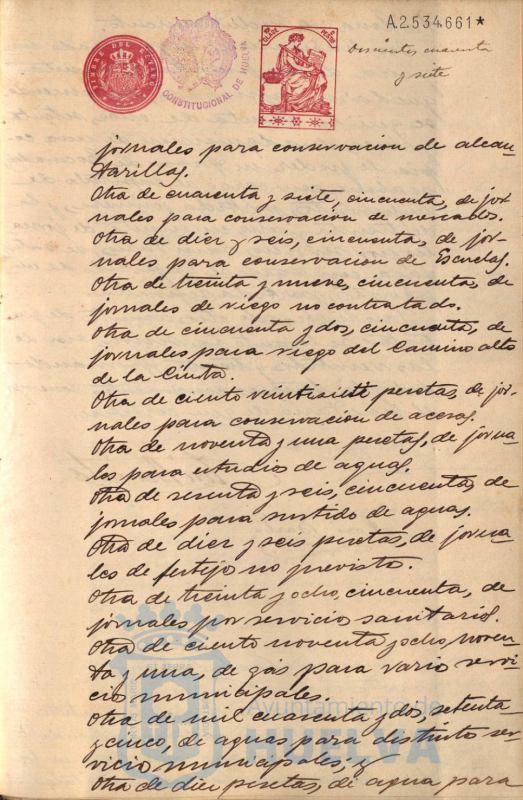 A.2.534.661*
Doscientos cuarenta
y siete
TIMBRE DEL ESTADO
CONSTITUCIONAL DE HUELVA
jornales para conservacion de alcan-
tarillas.
Otra de cuarenta y siete, cincuenta, de jor-
nales para conservacion de mercados.
Otra de diez y seis, cincuenta, de jor-
nales para conservacion de Escuelas.
Otra de treinta y nueve, cincuenta, de
jornales de riego no contratado.
Otra de cincuenta y dos, cincuenta, de
jornales para riego del Camino alto
de la Cinta.
Otra de ciento veintisiete pesetas, de jor-
nales para conservacion de aceras.
Otra de noventa y una pesetas, de jorna-
les para estudios de aguas.
Otra de sesenta y seis, cincuenta, de
jornales para surtido de aguas.
Otra de diez y seis pesetas, de jorna-
les de festejo no previsto.
Otra de treinta y ocho, cincuenta, de
jornales por servicio sanitario.
Otra de ciento noventa y ocho, noven-
ta y una, de gas para vario servi-
cio municipales.
Otra de mil cuarenta y dos, setenta
y cinco, de aguas para distinto ser-
vicio municipales; y
Otra de diez pesetas, de agua para
Ayuntamiento de
HUELVA